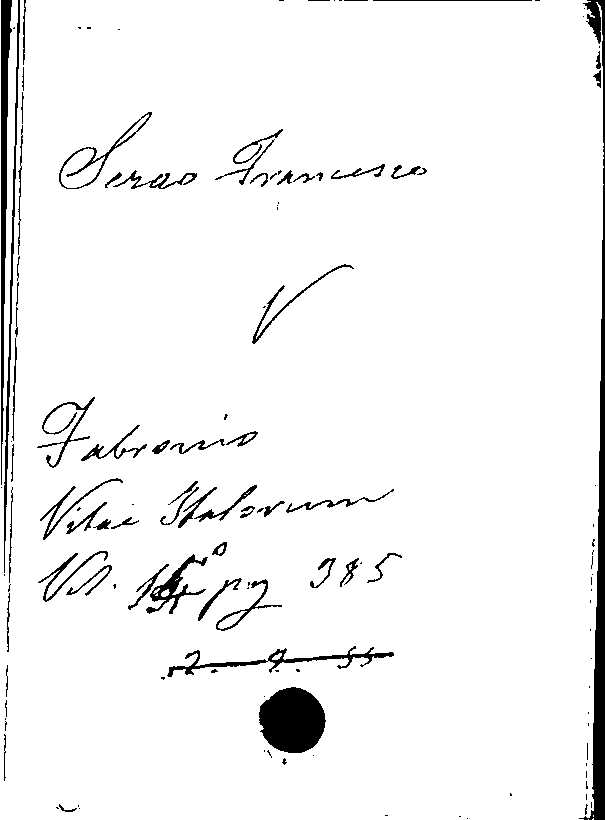 Serao Francesco
V
Fabronio
Vitae Italorum
Vol. pag 385